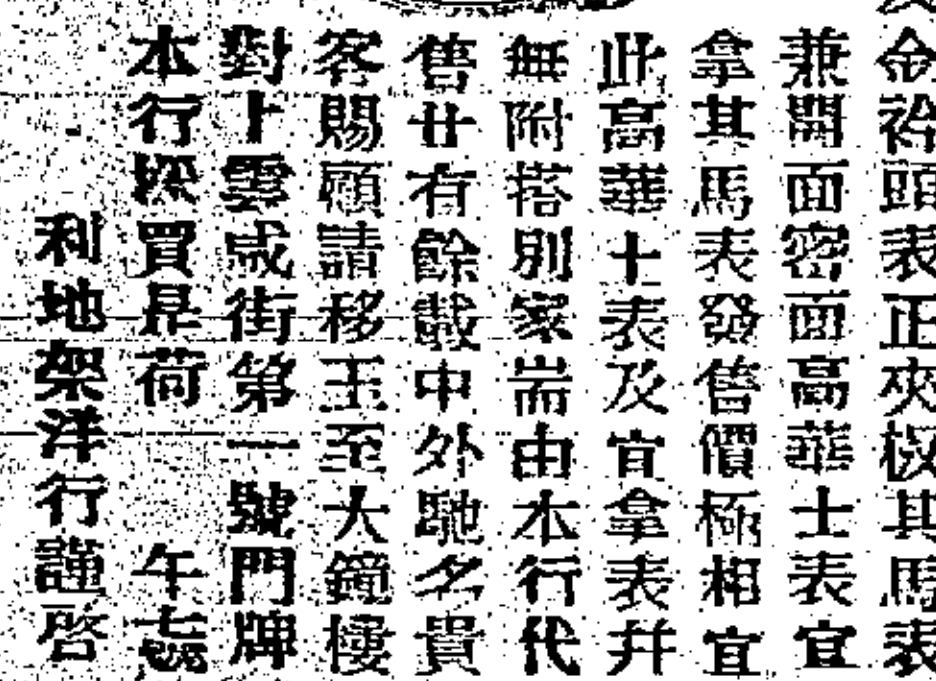 金衿頭表正夾板其馬表
兼開面密面高華士表宜
拿其馬表發售價極相宜
此高華士表及宜拿表并
無附搭別家耑由本行代
售廿有餘載中外馳名貴
客賜顧請移玉至大鐘樓
對上雲咸街第一號門牌
本行採買是荷 午
利地架洋行謹啓